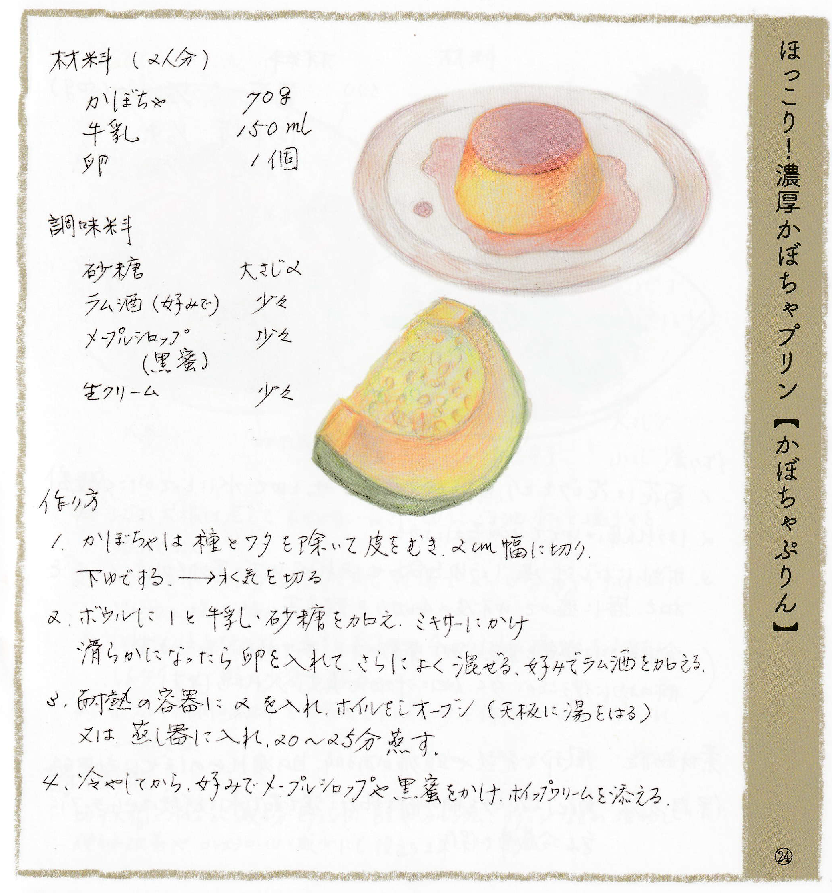 ほっこり!濃厚かぼちゃプリン【かぼちゃぷりん】
材料(2人分)
かぼちゃ 70g
牛乳 150ml
卵 1個
調味料
砂糖 大さじ2
ラム酒(好みで) 少々
メープルシロップ 少々
(黒蜜)
生クリーム 少々
作り方
1. かぼちゃは種とワタを除いて皮をむき、2cm幅に切り、
下ゆでする。→水気を切る
2. ボウルに1と牛乳・砂糖を加え、ミキサーにかけ
滑らかになったら卵を入れて、さらによく混ぜる、好みでラム酒を加える。
3. 耐熱の容器に2を入れ、ホイルをしオーブン(天板に湯をはる)
又は蒸し器に入れ、20〜25分蒸す。
4. 冷やしてから、好みでメープルシロップや黒蜜をかけ、ホイップクリームを添える。
㉔